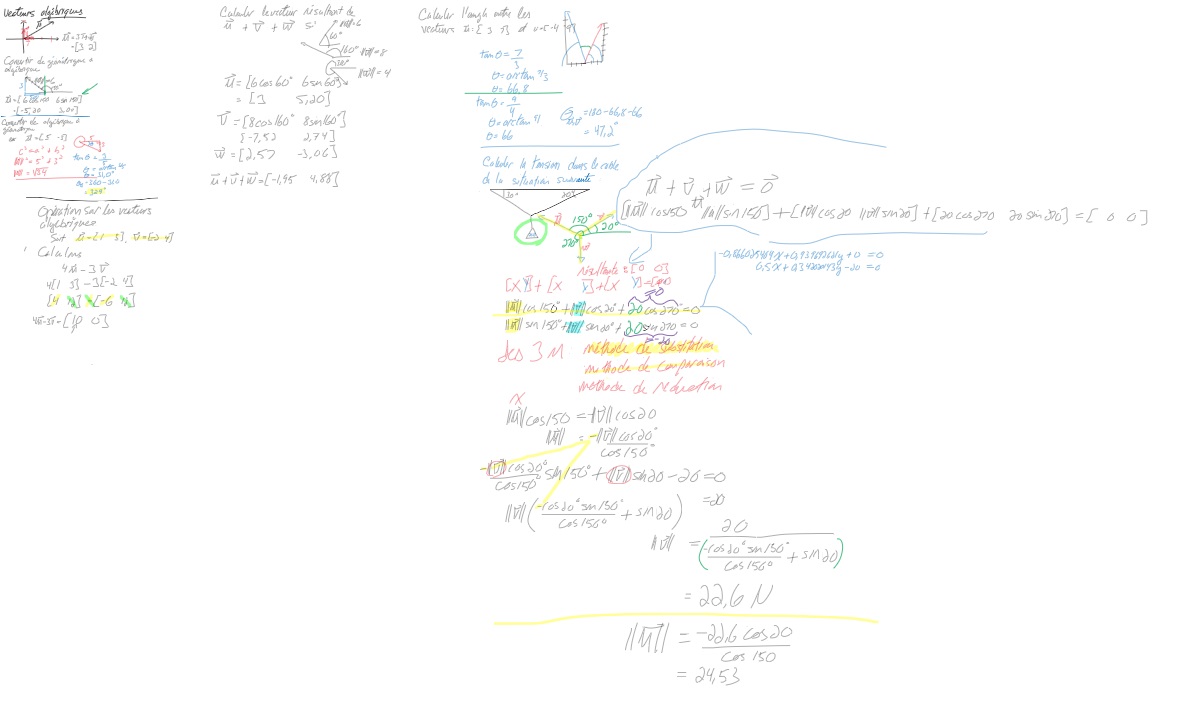 Vecteurs algébriques
= [3 2]
Convertir de géométrique à
algébrique
= [-5,20 3,00]
Convertir de algébrique à
géométrique
c² = a² + b²
= 5² + 3²
= √34
= 329°
Opération sur les vecteurs
algébriques
Soit u = [1 3], v = [-2 4]
Calculer
4u - 3v
4[1 3] - 3[-2 4]
[4 12] - [-6 12]
4u - 3v = [10 0]
Calculer le vecteur résultant de
u + v + w si
60°
160° ||v|| = 8
||w|| = 4
u = [6cos60° 6sin60°]
= [3 5,20]
v = [8cos160° 8sin160°]
[-7,52 2,74]
w = [2,57 -3,06]
u + v + w = [-1,95 4,88]
Calculer l'angle entre les
vecteurs u = [3 7] et v = [-4 9]
tanθ = 7/3
θ = arctan 7/3
θ = 66,8
tanθ = 9/4
θ = arctan 9/4
θ = 66
= 180-66,8-66
= 47,2°
Calculer la tension dans le cable
de la situation suivante
30° 20°
150°
20°
270°
u + v + w = 0
[||u||cos150 ||u||sin150] + [||v||cos20 ||v||sin20] + [20cos270 20sin270] = [0 0]
résultante = [0 0]
[X Y] + [X Y] + [X Y] = [0 0]
-0,866025404x + 0,939692621y + 0 = 0
0,5x + 0,342020143y - 20 = 0
= 0
||u||cos150° + ||v||cos20° + 20cos270° = 0
||u||sin150° + ||v||sin20° + 20sin270 = 0
= -20
des 3 M
méthode de substitution
méthode de comparaison
méthode de réduction
X
||u||cos150 = -||v||cos20
||u|| = -||v||cos20° / cos150°
-||v||cos20° / cos150° sin150° + ||v||sin20 - 20 = 0
||v||(-cos20° sin150° / cos150° + sin20) = 20
||v|| = 20 / (-cos20° sin150° / cos150° + sin20)
= 22,6 N
||u|| = -22,6 cos20 / cos150
= 24,53